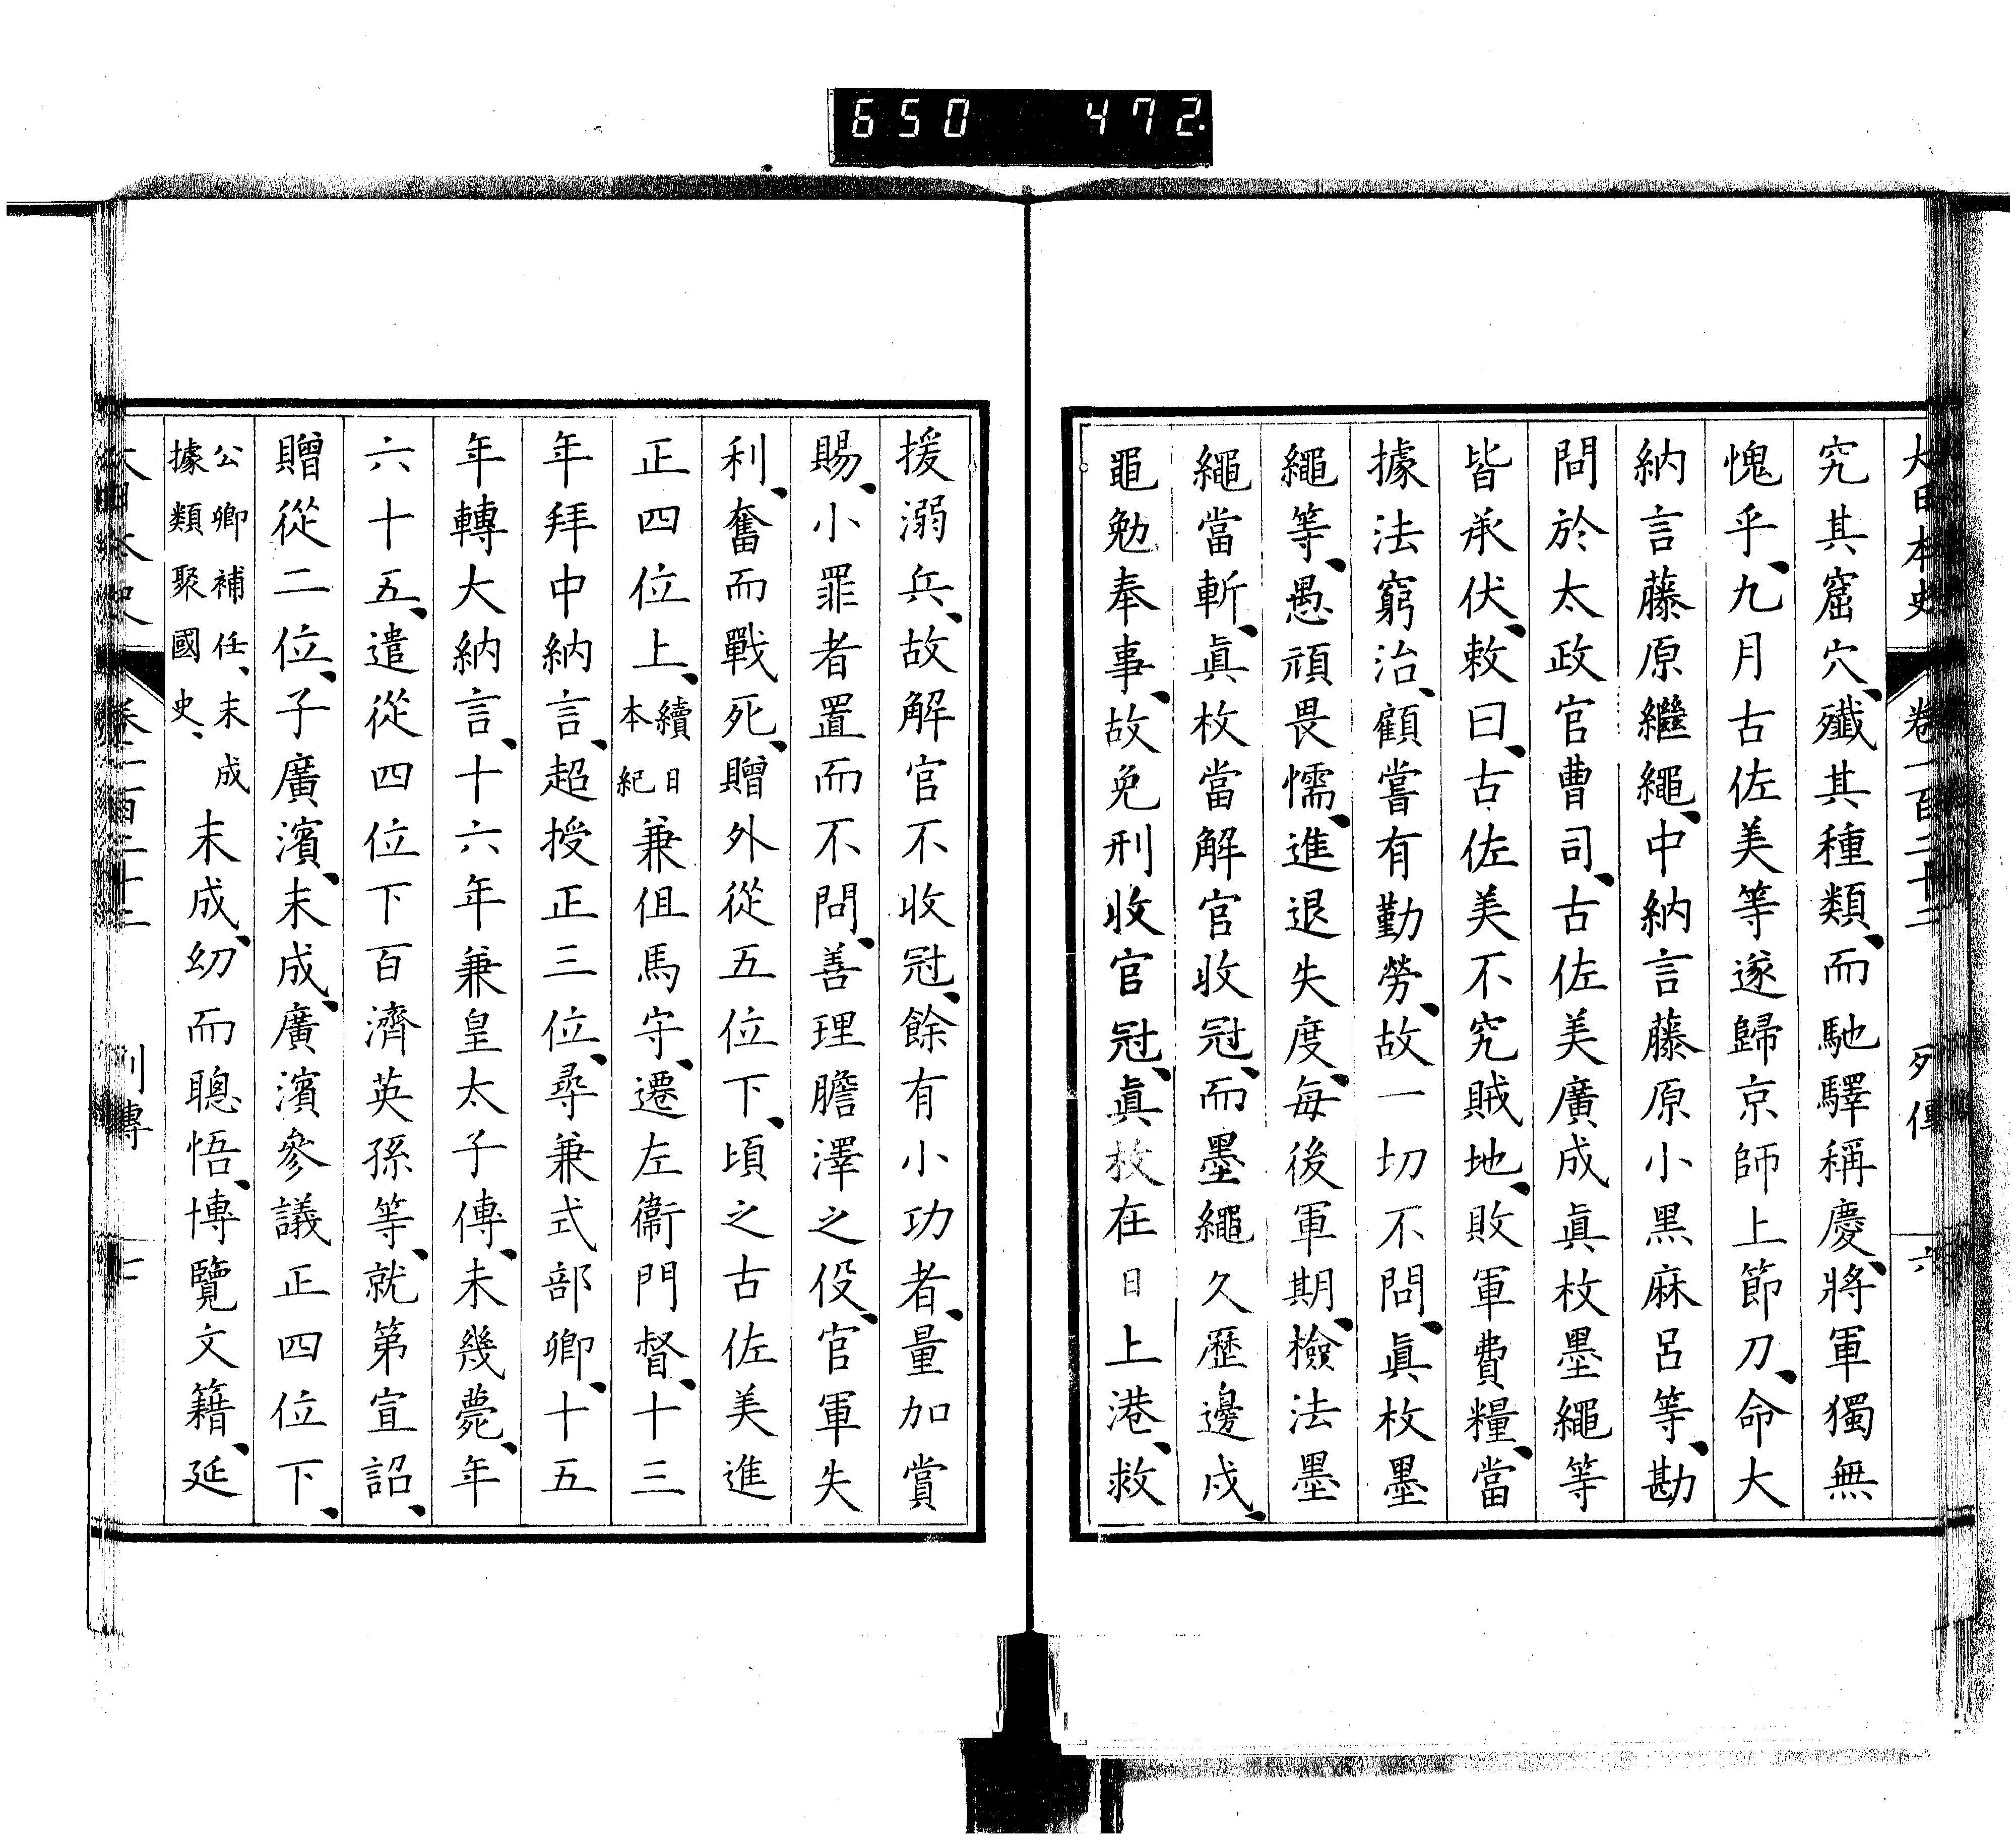 650 472.
大日本史 卷一百二十二 列傳 六
究其窟穴、殲其種類、而馳驛稱慶、將軍獨無
愧乎、九月古佐美等遂歸京師上節刀、命大
納言藤原繼繩、中納言藤原小黑麻呂等、勘
問於太政官曹司、古佐美廣成眞枚墨繩等
皆承伏、敕曰、古佐美不究賊地、敗軍費糧、當
據法窮治、顧嘗有勤勞、故一切不問、眞枚墨
繩等、愚頑畏懦、進退失度、每後軍期、檢法墨
繩當斬、眞枚當解官收冠、而墨繩久歷邊戍、
黽勉奉事、故免刑收官冠、眞枚在日上港、救
援溺兵、故解官不收冠、餘有小功者、量加賞
賜、小罪者置而不問、善理膽澤之役、官軍失
利、奮而戰死、贈外從五位下、頃之古佐美進
正四位上、續日本紀兼但馬守、遷左衞門督、十三
年拜中納言、超授正三位、尋兼式部卿、十五
年轉大納言、十六年兼皇太子傅、未幾薨、年
六十五、遣從四位下百濟英孫等、就第宣詔、
贈從二位、子廣濱、末成、廣濱參議正四位下、
公卿補任、末成據類聚國史、末成、幼而聰悟、博覽文籍、延
大日本史 卷一百二十二 列傳 七